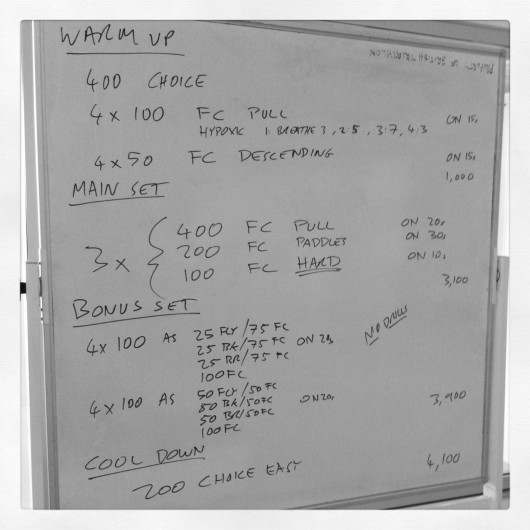 WARM UP
PROPERTY OF BRITISH TRIATHLON
400 CHOICE
4 x 100 FC PULL ON 15s
HYPOXIC 1: BREATHE 3, 2:5, 3:7, 4:3
4 x 50 FC DESCENDING ON 15s
1,000
MAIN SET
3 x { 400 FC PULL ON 20s
200 FC PADDLES ON 30s
100 FC HARD ON 10s
3,100
BONUS SET
NO DRILLS
4 x 100 AS 25 FLY/75 FC ON 20s
25 BK/75 FC
25 BR/75 FC
100 FC
4 x 100 AS 50 FLY/50 FC ON 20s
50 BK/50 FC
50 BR/50 FC
100 FC
3,900
COOL DOWN
200 CHOICE EASY
4,100